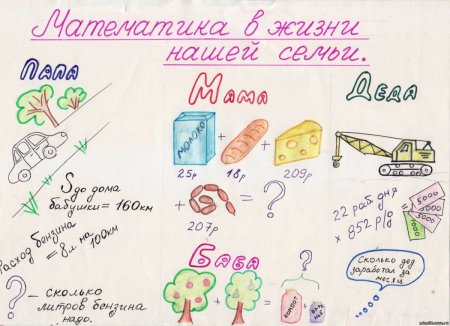 Математика в жизни
нашей семьи.
ПАПА
S до дома
бабушки = 160км
Расход бензина
= 8л на 100км
? – сколько
литров бензина
надо.
Мама
МОЛОКО
+ +
25р 18р 209р
+ = ?
207р
БАБА
+ =
?
КОМПОТ
ДЕДА
22 раб дня
× 852 р/д
5000
1000
Сколько дед
заработал за
месяц